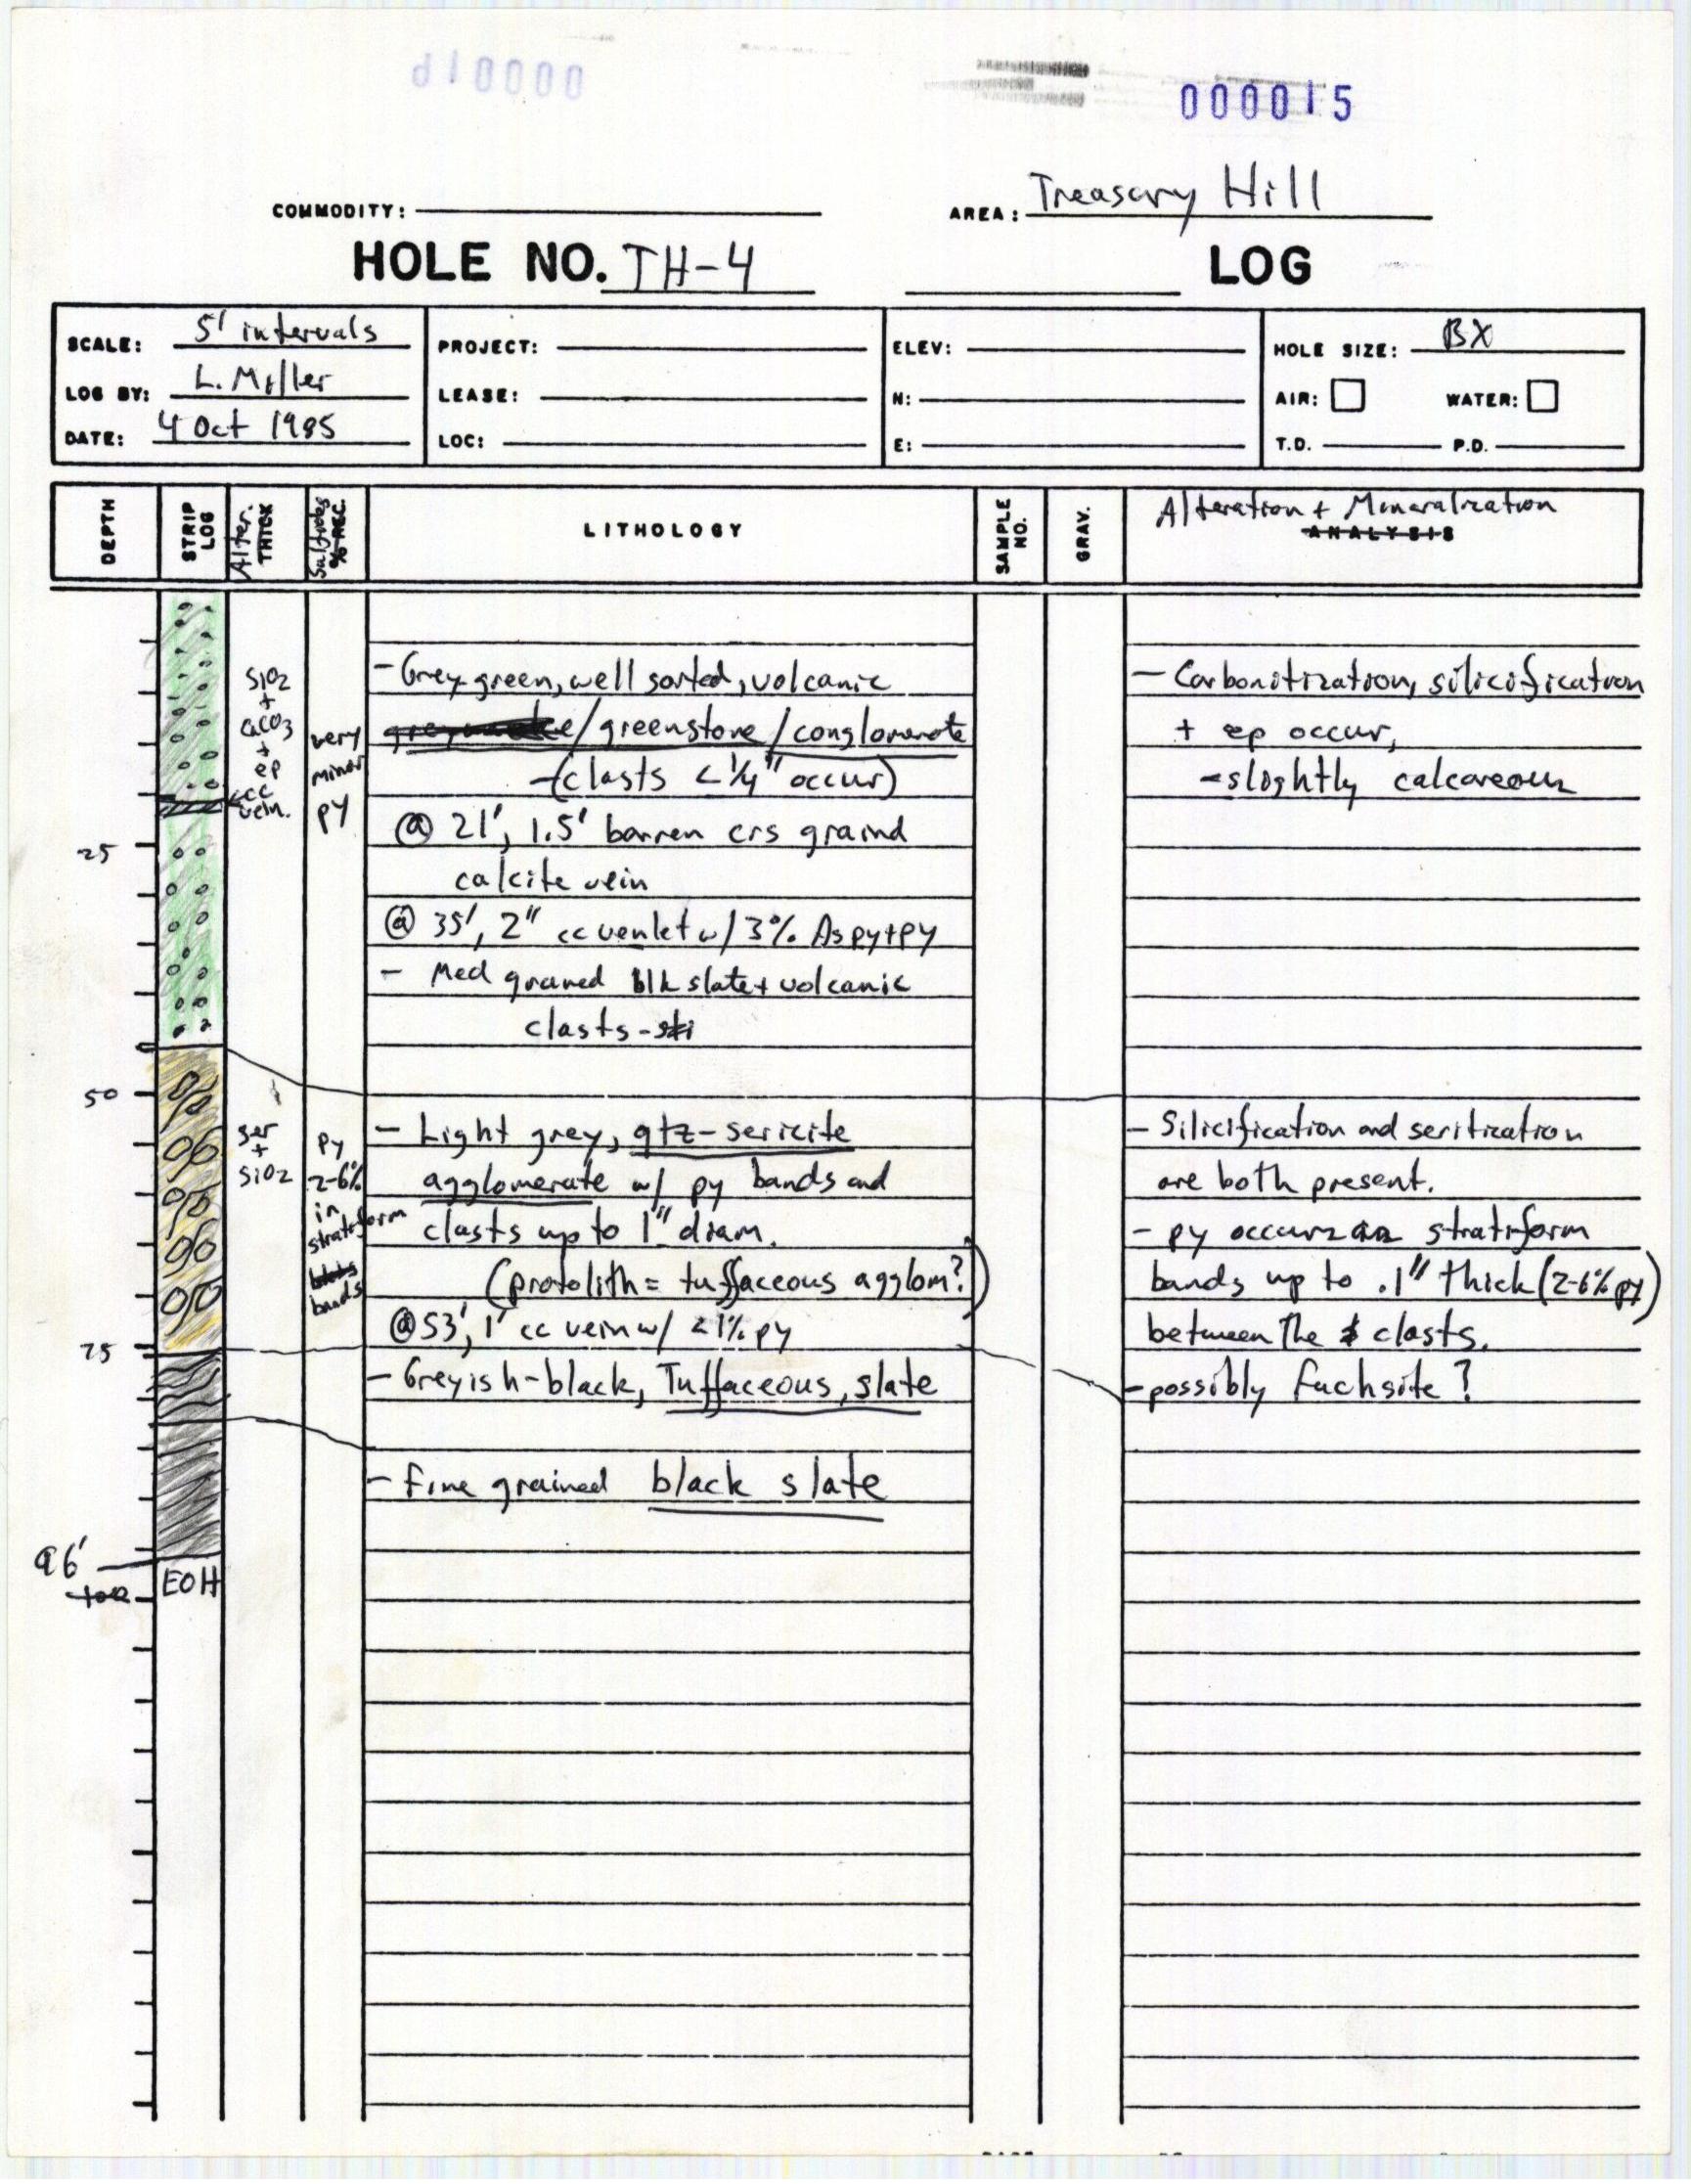 000016
000015
COMMODITY:
AREA: Treasury Hill
HOLE NO. TH-4
LOG
SCALE: 5' intervals
LOG BY: L. Miller
DATE: 4 Oct 1985
PROJECT:
LEASE:
LOC:
ELEV:
N:
E:
HOLE SIZE: BX
AIR:
WATER:
T.D.
P.D.
DEPTH
STRIP LOG
Alter.
THICK
Sulfides
% REC.
LITHOLOGY
SAMPLE NO.
GRAV.
Alteration + Mineralization
ANALYSIS
SiO2
+
CaCO3
+
ep
cc
vein.
very
minor
py
- Grey green, well sorted, volcanic
/greenstone/conglomerate
-(clasts < 1/4" occur)
@ 21', 1.5' barren crs graind
calcite vein
@ 35', 2" cc venlet w/ 3% Aspy+py
- Med grained blk slate + volcanic
clasts -
- Carbonitization, silicification
+ ep occur,
- slightly calcareous
25
50
ser
+
SiO2
py
2-6%
in
stratiform
bands
- Light grey, qtz-sericite
agglomerate w/ py bands and
clasts up to 1" diam.
(protolith = tuffaceous agglom?)
@ 53', 1' cc vein w/ <1% py
- Silicification and seritization
are both present.
- py occurs in stratiform
bands up to .1" thick (2-6% py)
between the clasts.
- possibly fuchsite?
75
- Greyish-black, Tuffaceous, slate
- Fine grained black slate
96'
100
EOH